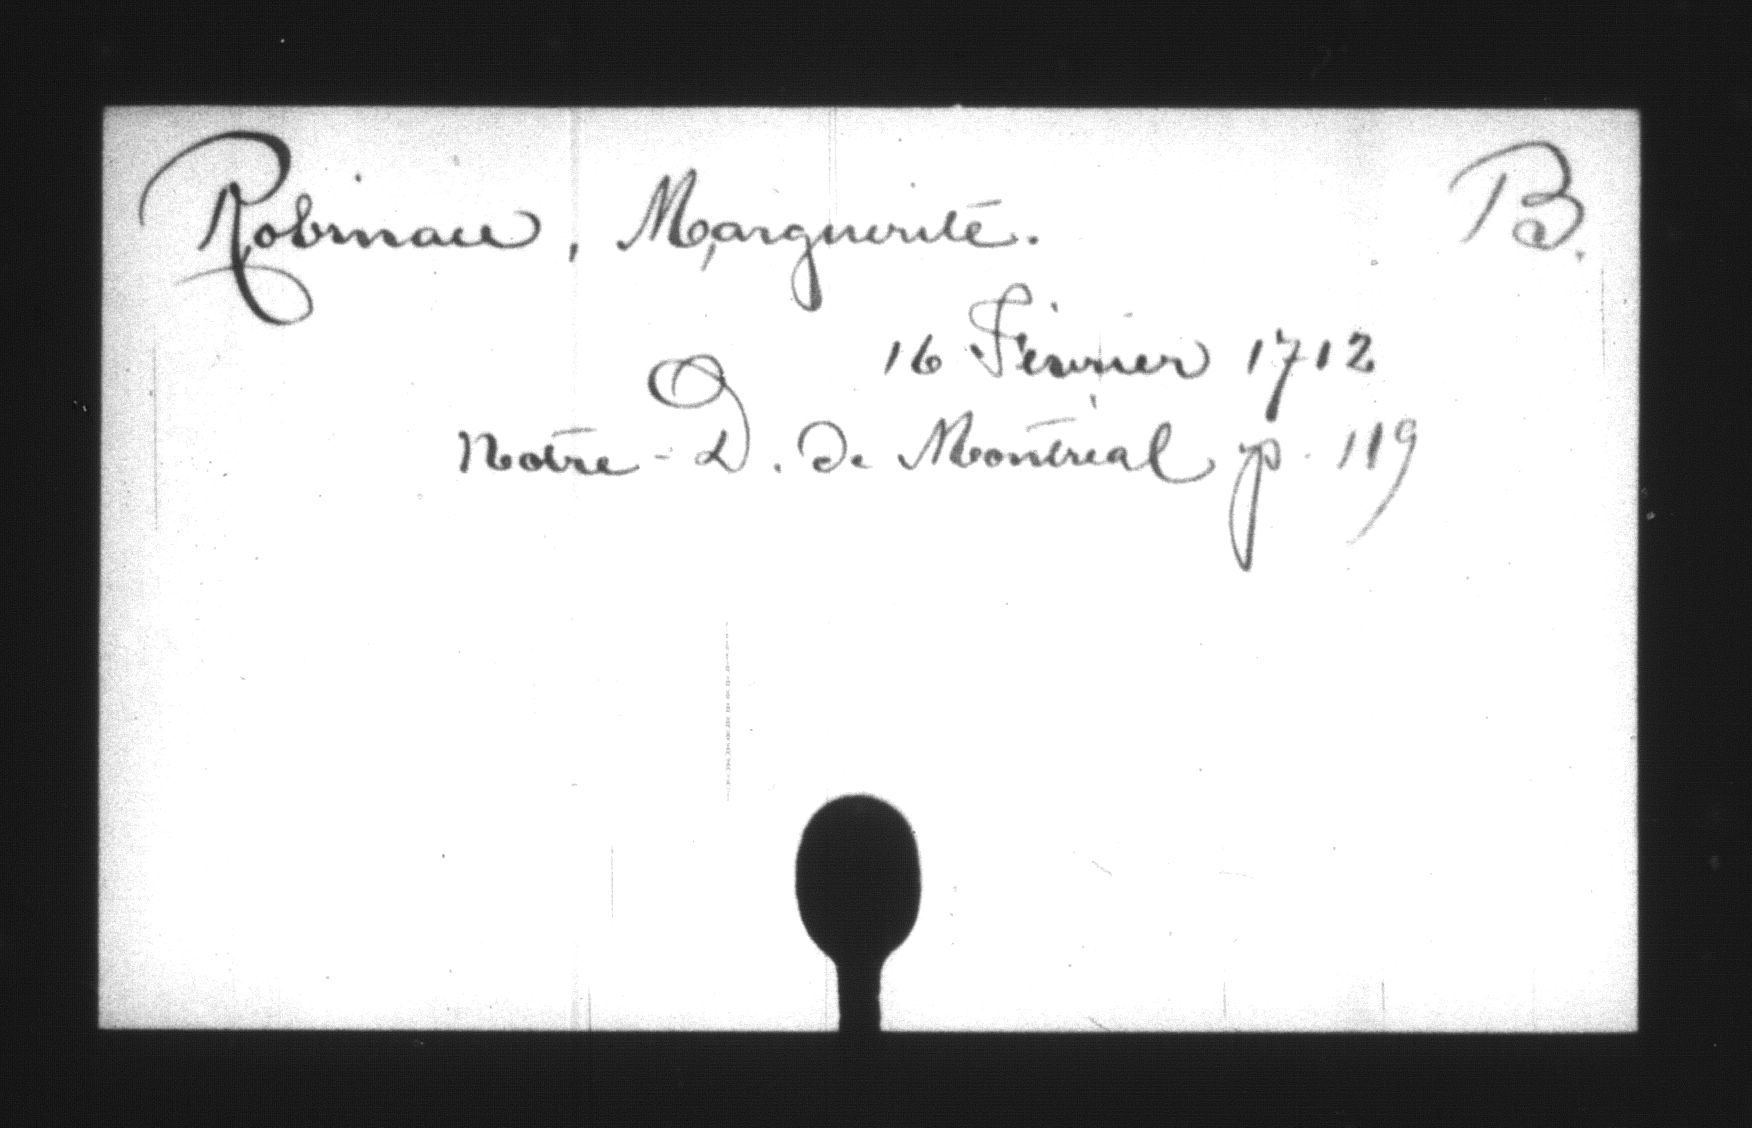 Robinau, Marguerite. B.
16 Février 1712
Notre-D. de Montréal p. 119